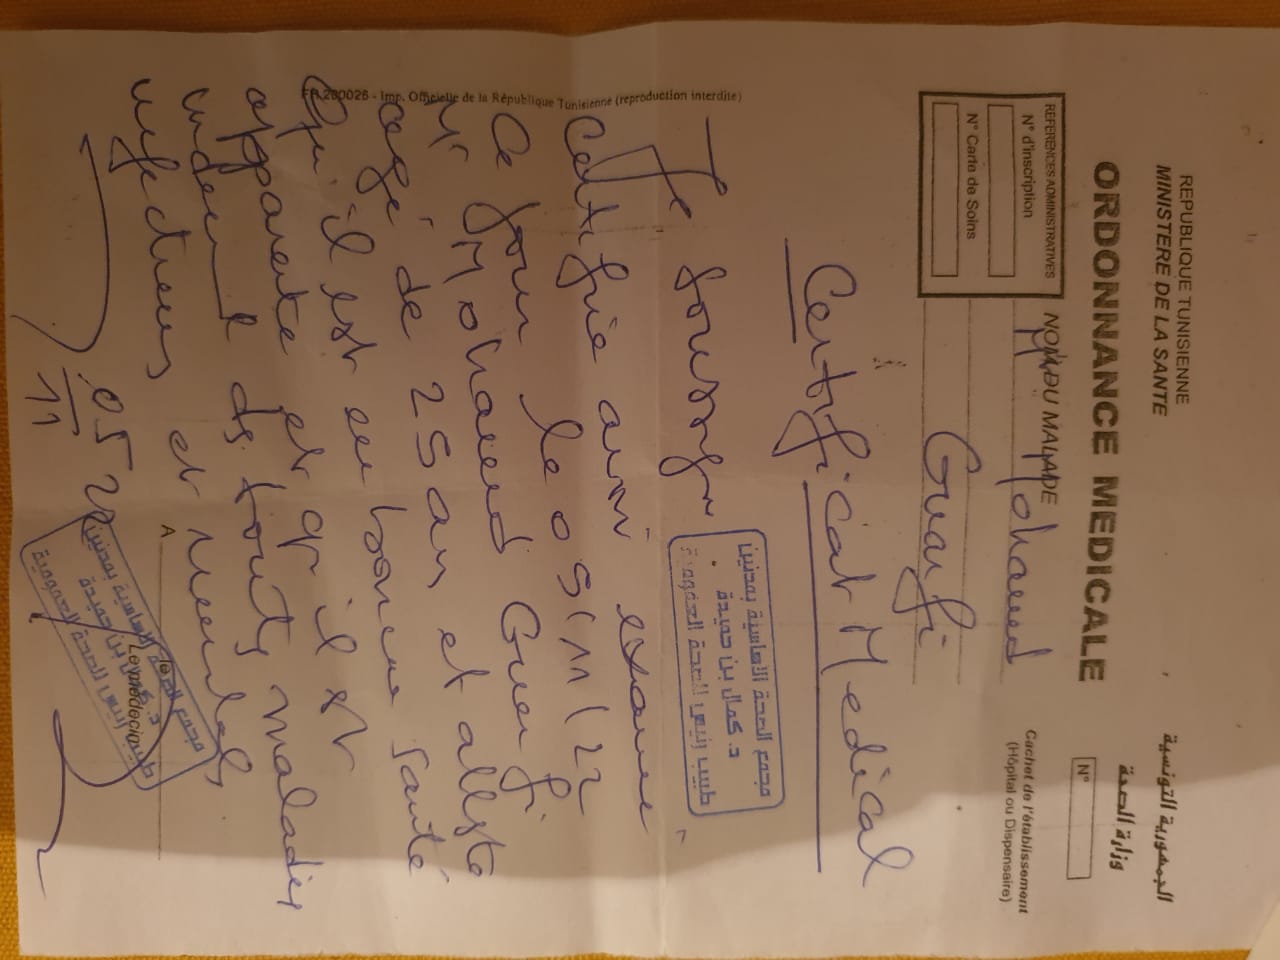 REPUBLIQUE TUNISIENNE
MINISTERE DE LA SANTE
الجمهورية التونسية
وزارة الصحة
ORDONNANCE MEDICALE
N°
REFERENCES ADMINISTRATIVES
N° d'inscription
N° Carte de Soins
NOM DU MALADE
Mohamed
Guarfi
Cachet de l'établissement
(Hôpital ou Dispensaire)
Certificat Medical
مجمع الصحة الأساسية بمدنين
د. كمال بن حميدة
طبيب رئيس للصحة العمومية
Je soussigné
certifie avoir examiné
Ce jour le 05/11/22
Mr Mohamed Guarfi
agé de 25 ans et atteste
Qu'il est en bonne santé
apparente et qu'il est
indemne de toutes maladies
infectieuses et mentales
05 22
11
A
le
Le médecin
مجمع الصحة الأساسية بمدنين
د. كمال بن حميدة
طبيب رئيس للصحة العمومية
FR 280026 - Imp. Officielle de la République Tunisienne (reproduction interdite)